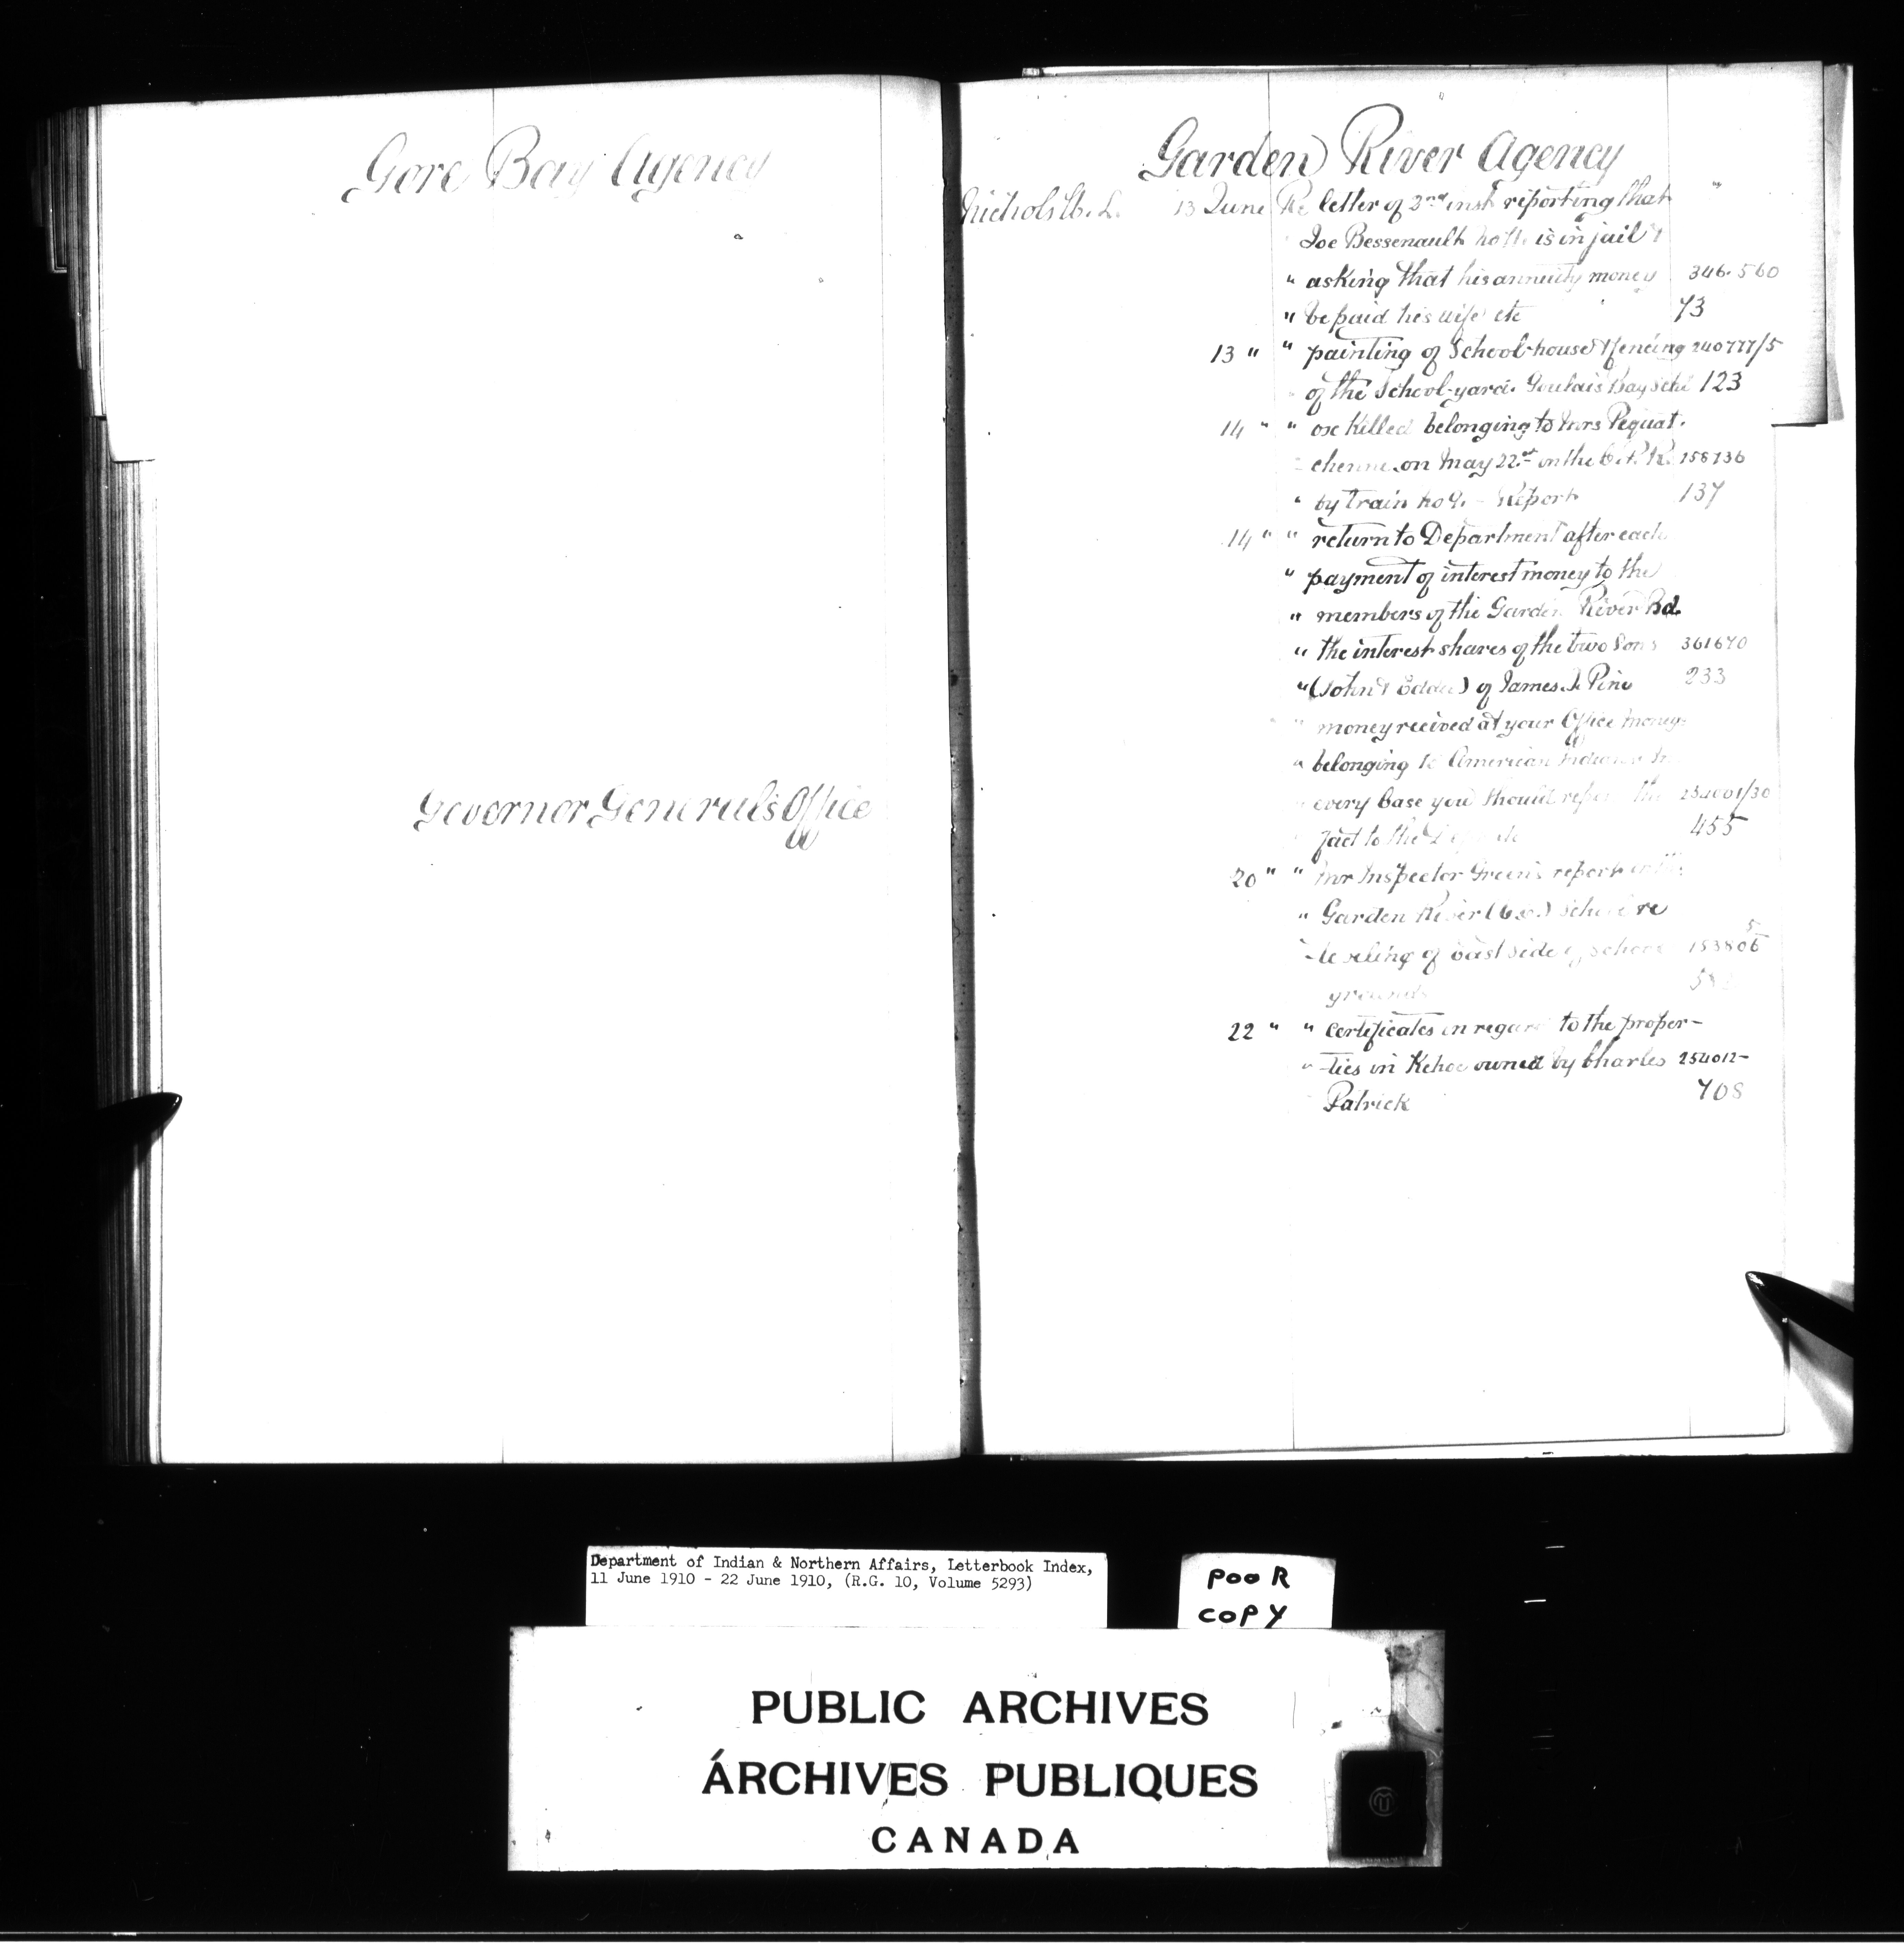 Gore Bay Agency
Governor General's Office
Garden River Agency
Nichols W. L. 13 June Re letter of 2nd inst reporting that "
Joe Bessenault No 71 is in jail &
" asking that his annuity money 346.560
" be paid his wife etc 73
13 " " painting of School-house & fencing 240777/5
of the School-yard. Goulais Bay Schl 123
14 " " ox killed belonging to Mrs Pequat.
chenne on May 22nd on the C.P.R. 158136
" by train No 9. - Report 137
14 " " return to Department after each
" payment of interest money to the
" members of the Garden River Bd.
" the interest shares of the two sons 361670
" (John & Eddie) of James J. Pine 233
" money recived at your Office money
" belonging to American Indians In
" every Case you should report the 254001/30
fact to the 455
20 " " Mr Inspector Green's report on the
" Garden River (C.E.) School re
of East side of School 153806 5
grounds
22 " " Certificates in regard to the proper-
" -ties in Kehoe owned by Charles 254012-
Patrick 708
Department of Indian & Northern Affairs, Letterbook Index,
11 June 1910 - 22 June 1910, (R.G. 10, Volume 5293)
POOR
COPY
PUBLIC ARCHIVES
ÁRCHIVES PUBLIQUES
CANADA